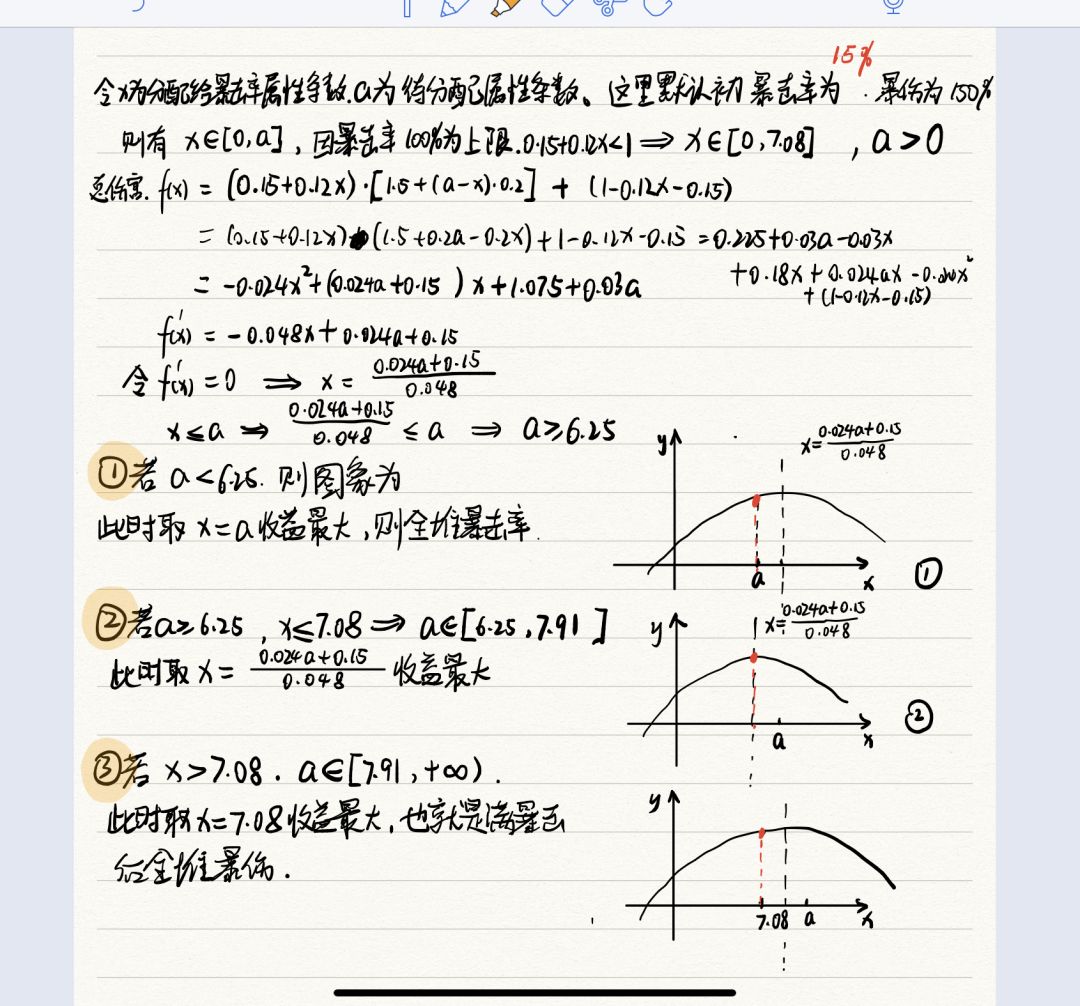 15%
令x为分配给暴击率属性条数.a为待分配总属性条数、这里默认初暴击率为 . 暴伤为150%
则有 x∈[0,a], 因暴击率100%为上限.0.15+0.12x<1 ⇒ x∈[0,7.08] , a>0
总伤害. f(x) = (0.15+0.12x)·[1.5+(a-x)·0.2] + (1-0.12x-0.15)
= (0.15+0.12x)(1.5+0.2a-0.2x)+1-0.12x-0.15 =0.225+0.03a-0.03x
+0.18x+0.024ax-0.024x²
+(1-0.12x-0.15)
= -0.024x²+(0.024a+0.15)x+1.075+0.03a
f'(x) = -0.048x+0.024a+0.15
令 f'(x)=0 ⇒ x= (0.024a+0.15)/0.048
x≤a ⇒ (0.024a+0.15)/0.048 ≤a ⇒ a≥6.25
①若 a<6.25. 则图象为
此时取 x=a 收益最大,则全堆暴击率.
y
x=(0.024a+0.15)/0.048
a
x
①
②若a≥6.25 , x≤7.08 ⇒ a∈[6.25,7.91]
此时取 x= (0.024a+0.15)/0.048 收益最大
y
x=(0.024a+0.15)/0.048
a
x
②
③若 x>7.08 . a∈[7.91,+∞).
此时取x=7.08收益最大,也就是满暴击
后全堆暴伤.
y
7.08
a
x